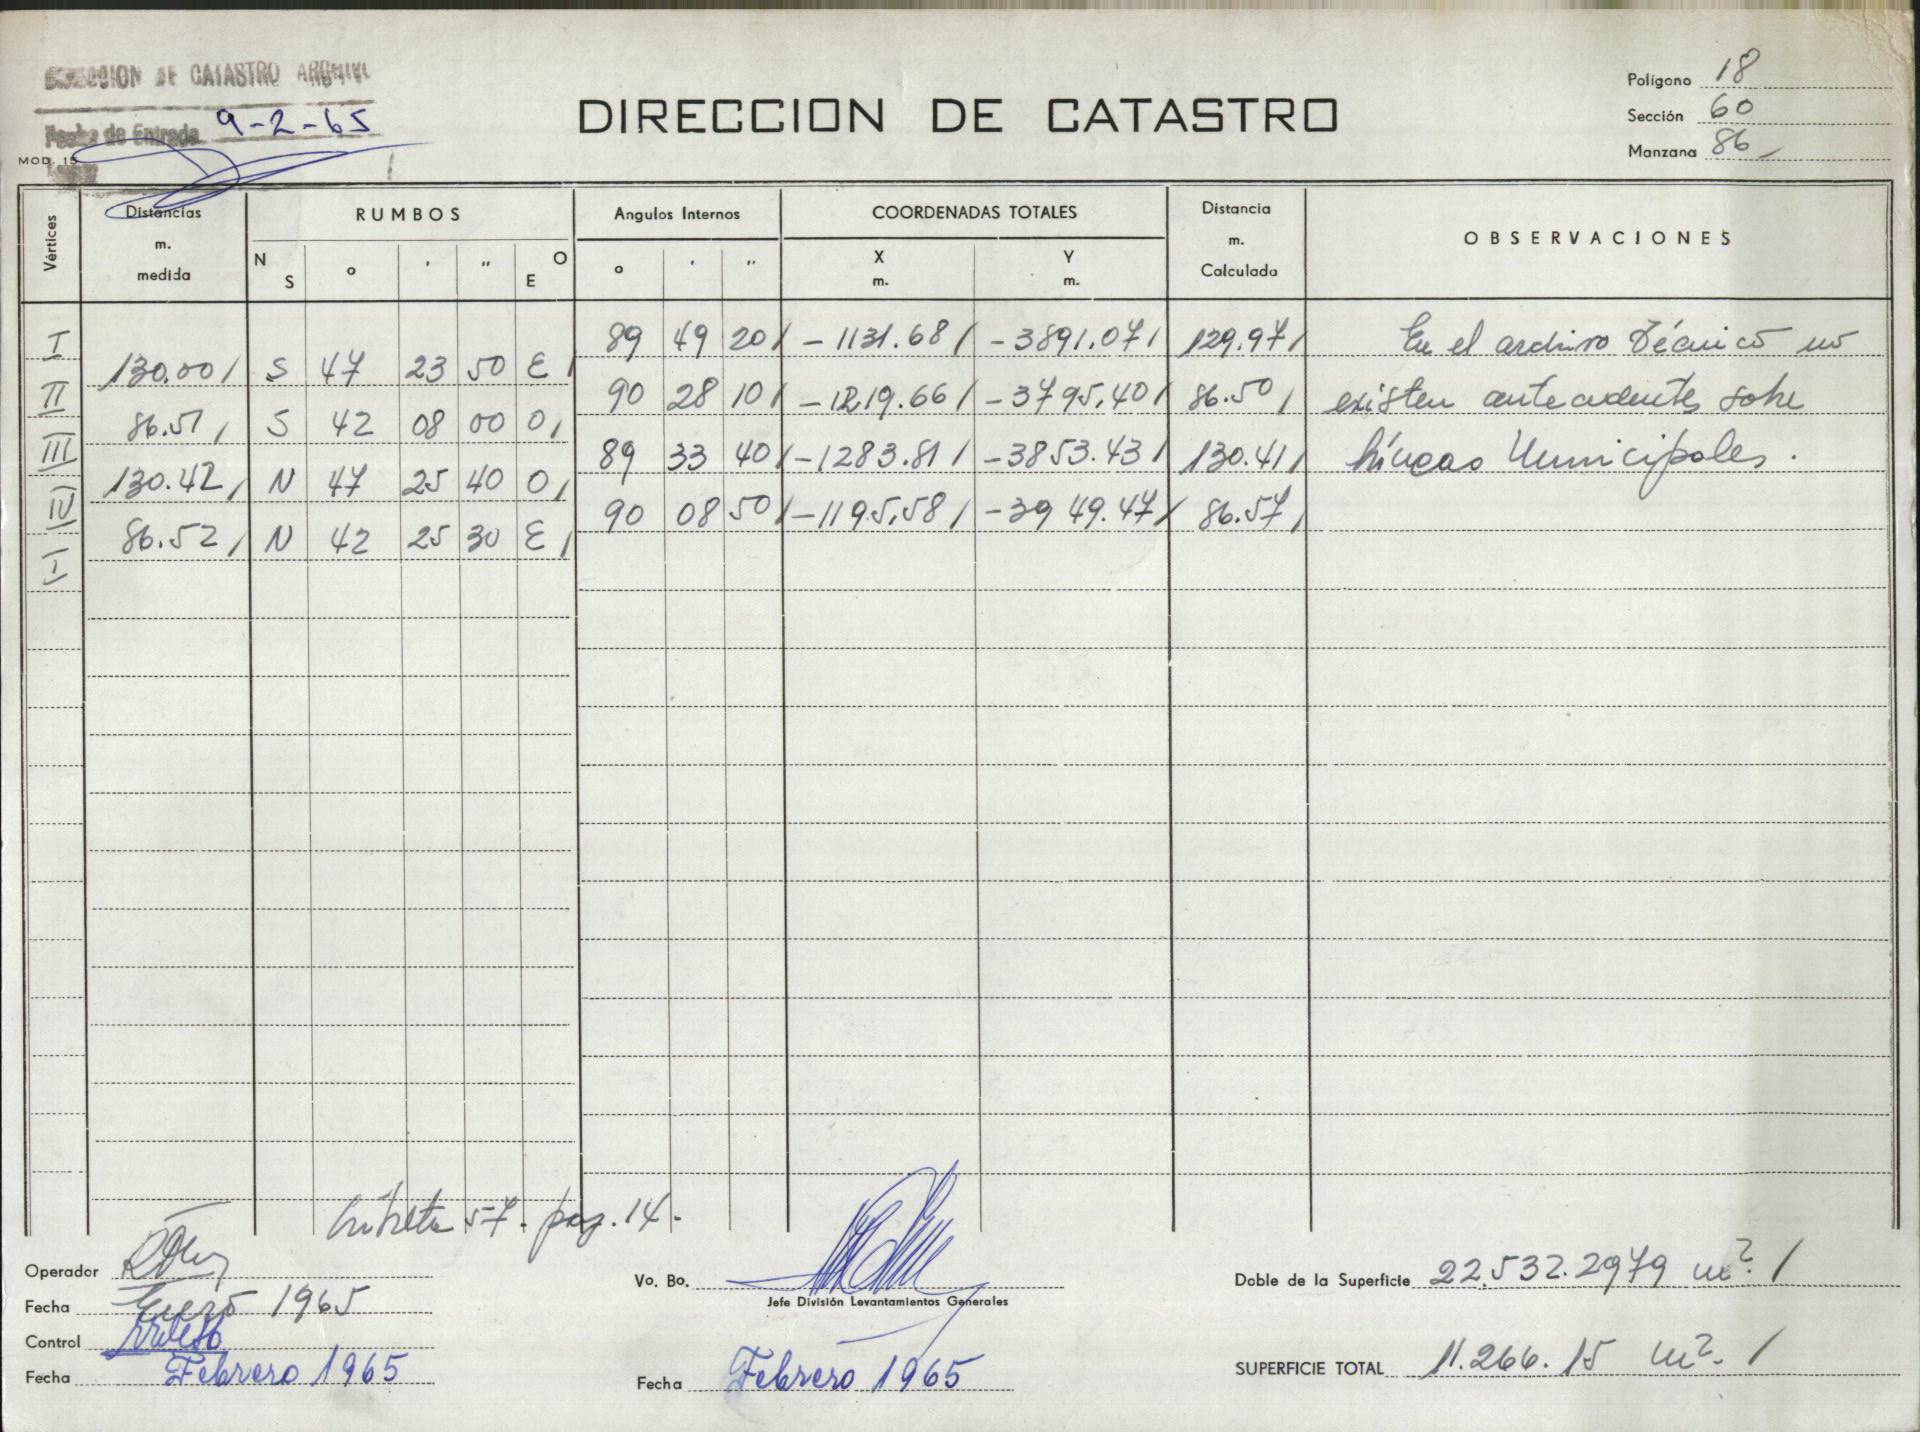 DIRECCION DE CATASTRO ARCHIVO
Fecha de Entrada 9-2-65
MOD. 15
DIRECCION DE CATASTRO
Polígono 18
Sección 60
Manzana 86
Vértices Distancias m. medida RUMBOS Angulos Internos COORDENADAS TOTALES Distancia m. Calculada OBSERVACIONES
N S o ' '' O E o ' '' X m. Y m.
I 89 49 20 -1131.68 -3891.07 129.97 En el archivo Técnico no
130.00 S 47 23 50 E
II 90 28 10 -1219.66 -3795.40 86.50 existen antecedentes sobre
86.51 S 42 08 00 O
III 89 33 40 -1283.81 -3853.43 130.41 líneas Municipales.
130.42 N 47 25 40 O
IV 90 08 50 -1195.58 -3949.47 86.57
86.52 N 42 25 30 E
I
Libreta 57. pag. 14.
Operador
Fecha Enero 1965
Control
Fecha Febrero 1965
Vo. Bo.
Jefe División Levantamientos Generales
Fecha Febrero 1965
Doble de la Superficie 22.532.2979 m².
SUPERFICIE TOTAL 11.266.15 m².